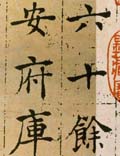 六十餘
安府庫